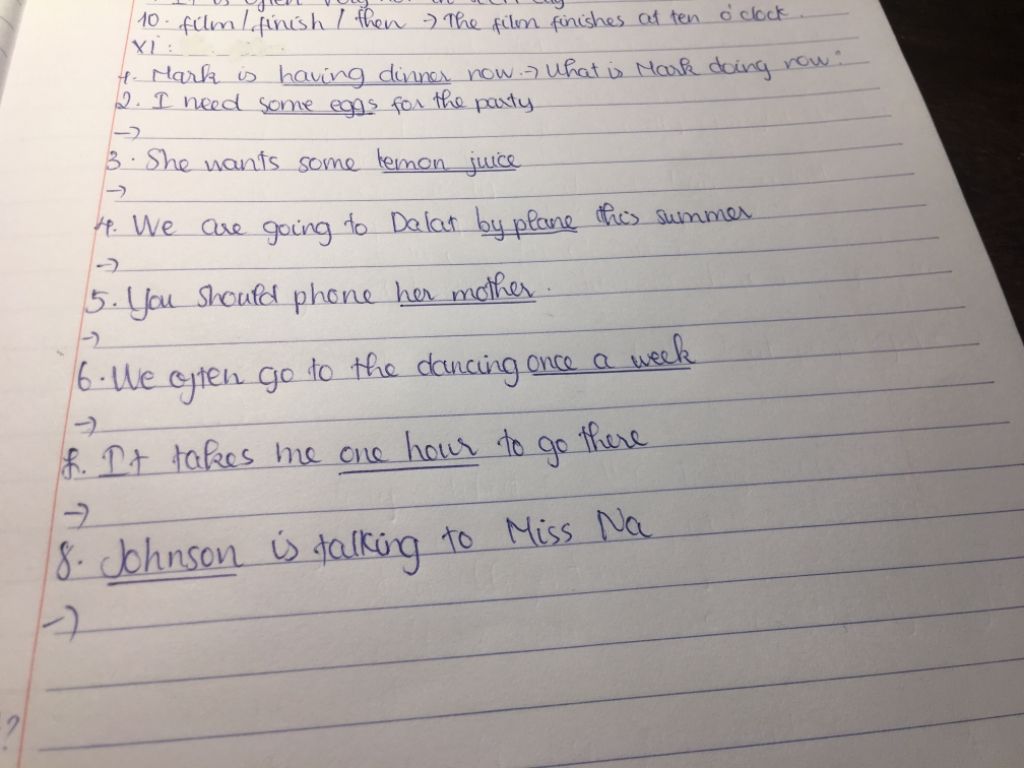 10. film / finish / then → The film finishes at ten o'clock.
XI:
1. Mark is having dinner now. → What is Mark doing now?
2. I need some eggs for the party
→
3. She wants some lemon juice
→
4. We are going to Dalat by plane this summer
→
5. You should phone her mother.
→
6. We often go to the dancing once a week
→
7. It takes me one hour to go there
→
8. Johnson is talking to Miss Na
→
?